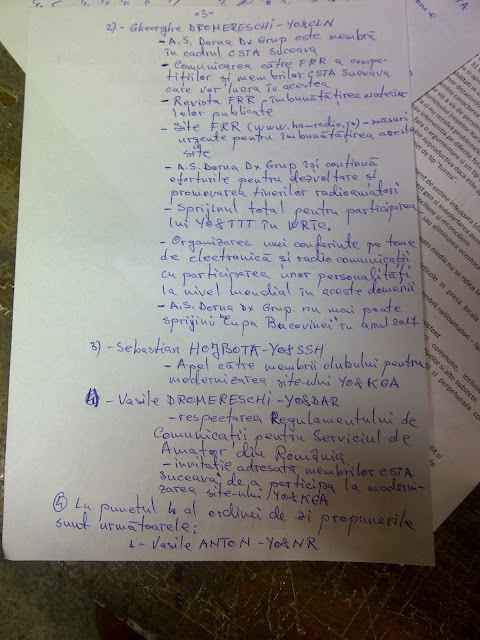 -3-
2) - Gheorghe DROMERESCHI - YO8CLN
- A.S. Dorna Dx Grup este membră
în cadrul CSTA Suceava
- Comunicarea către FRR a compe-
tițiilor și membrilor CSTA Suceava
care vor lucra în acestea
- Revista FRR - îmbunătățirea materia-
lelor publicate
- Site FRR (www.hamradio.ro) - măsuri
urgente pentru îmbunătățirea acestui
site
- A.S. Dorna Dx Grup își continuă
eforturile pentru dezvoltare și
promovarea tinerilor radioamatori
- Sprijinul total pentru participarea
lui YO8TTT în WRTC.
- Organizarea unei conferințe pe teme
de electronică și radio comunicații
cu participarea unor personalități
la nivel mondial în aceste domenii
- A.S. Dorna Dx Grup nu mai poate
sprijini "Cupa Bucovinei" în anul 2017
3) - Sebastian HOJBOTA - YO8SSH
- Apel către membrii clubului pentru
modernizarea site-ului YO8KGA
4) - Vasile DROMERESCHI - YO8DAR
- respectarea Regulamentului de
Comunicații pentru Serviciul de
Amator din România
- invitație adresată membrilor CSTA
Suceava de a participa la moderni-
zarea site-ului YO8KGA
4) La punctul 4 al ordinei de zi propunerile
sunt următoarele:
1 - Vasile ANTON - YO8NR